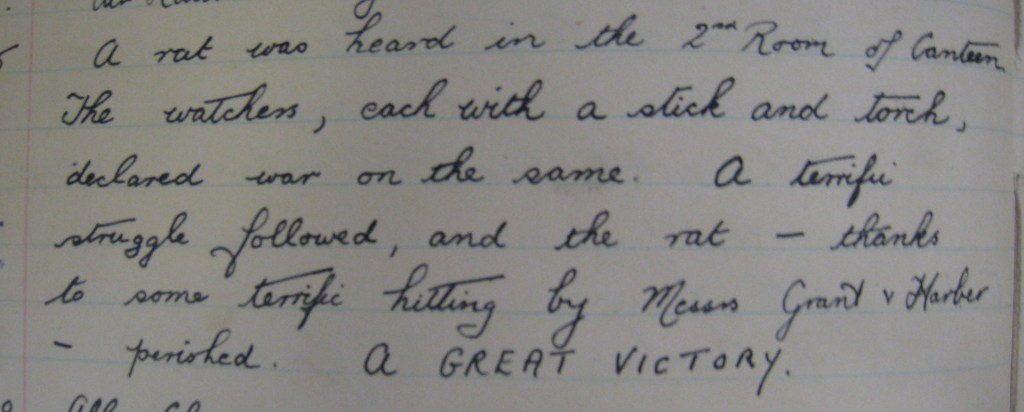 A rat was heard in the 2nd Room of Canteen
The watchers, each with a stick and torch,
declared war on the same. A terrific
struggle followed, and the rat – thanks
to some terrific hitting by Messrs Grant & Harber
– perished. A GREAT VICTORY.